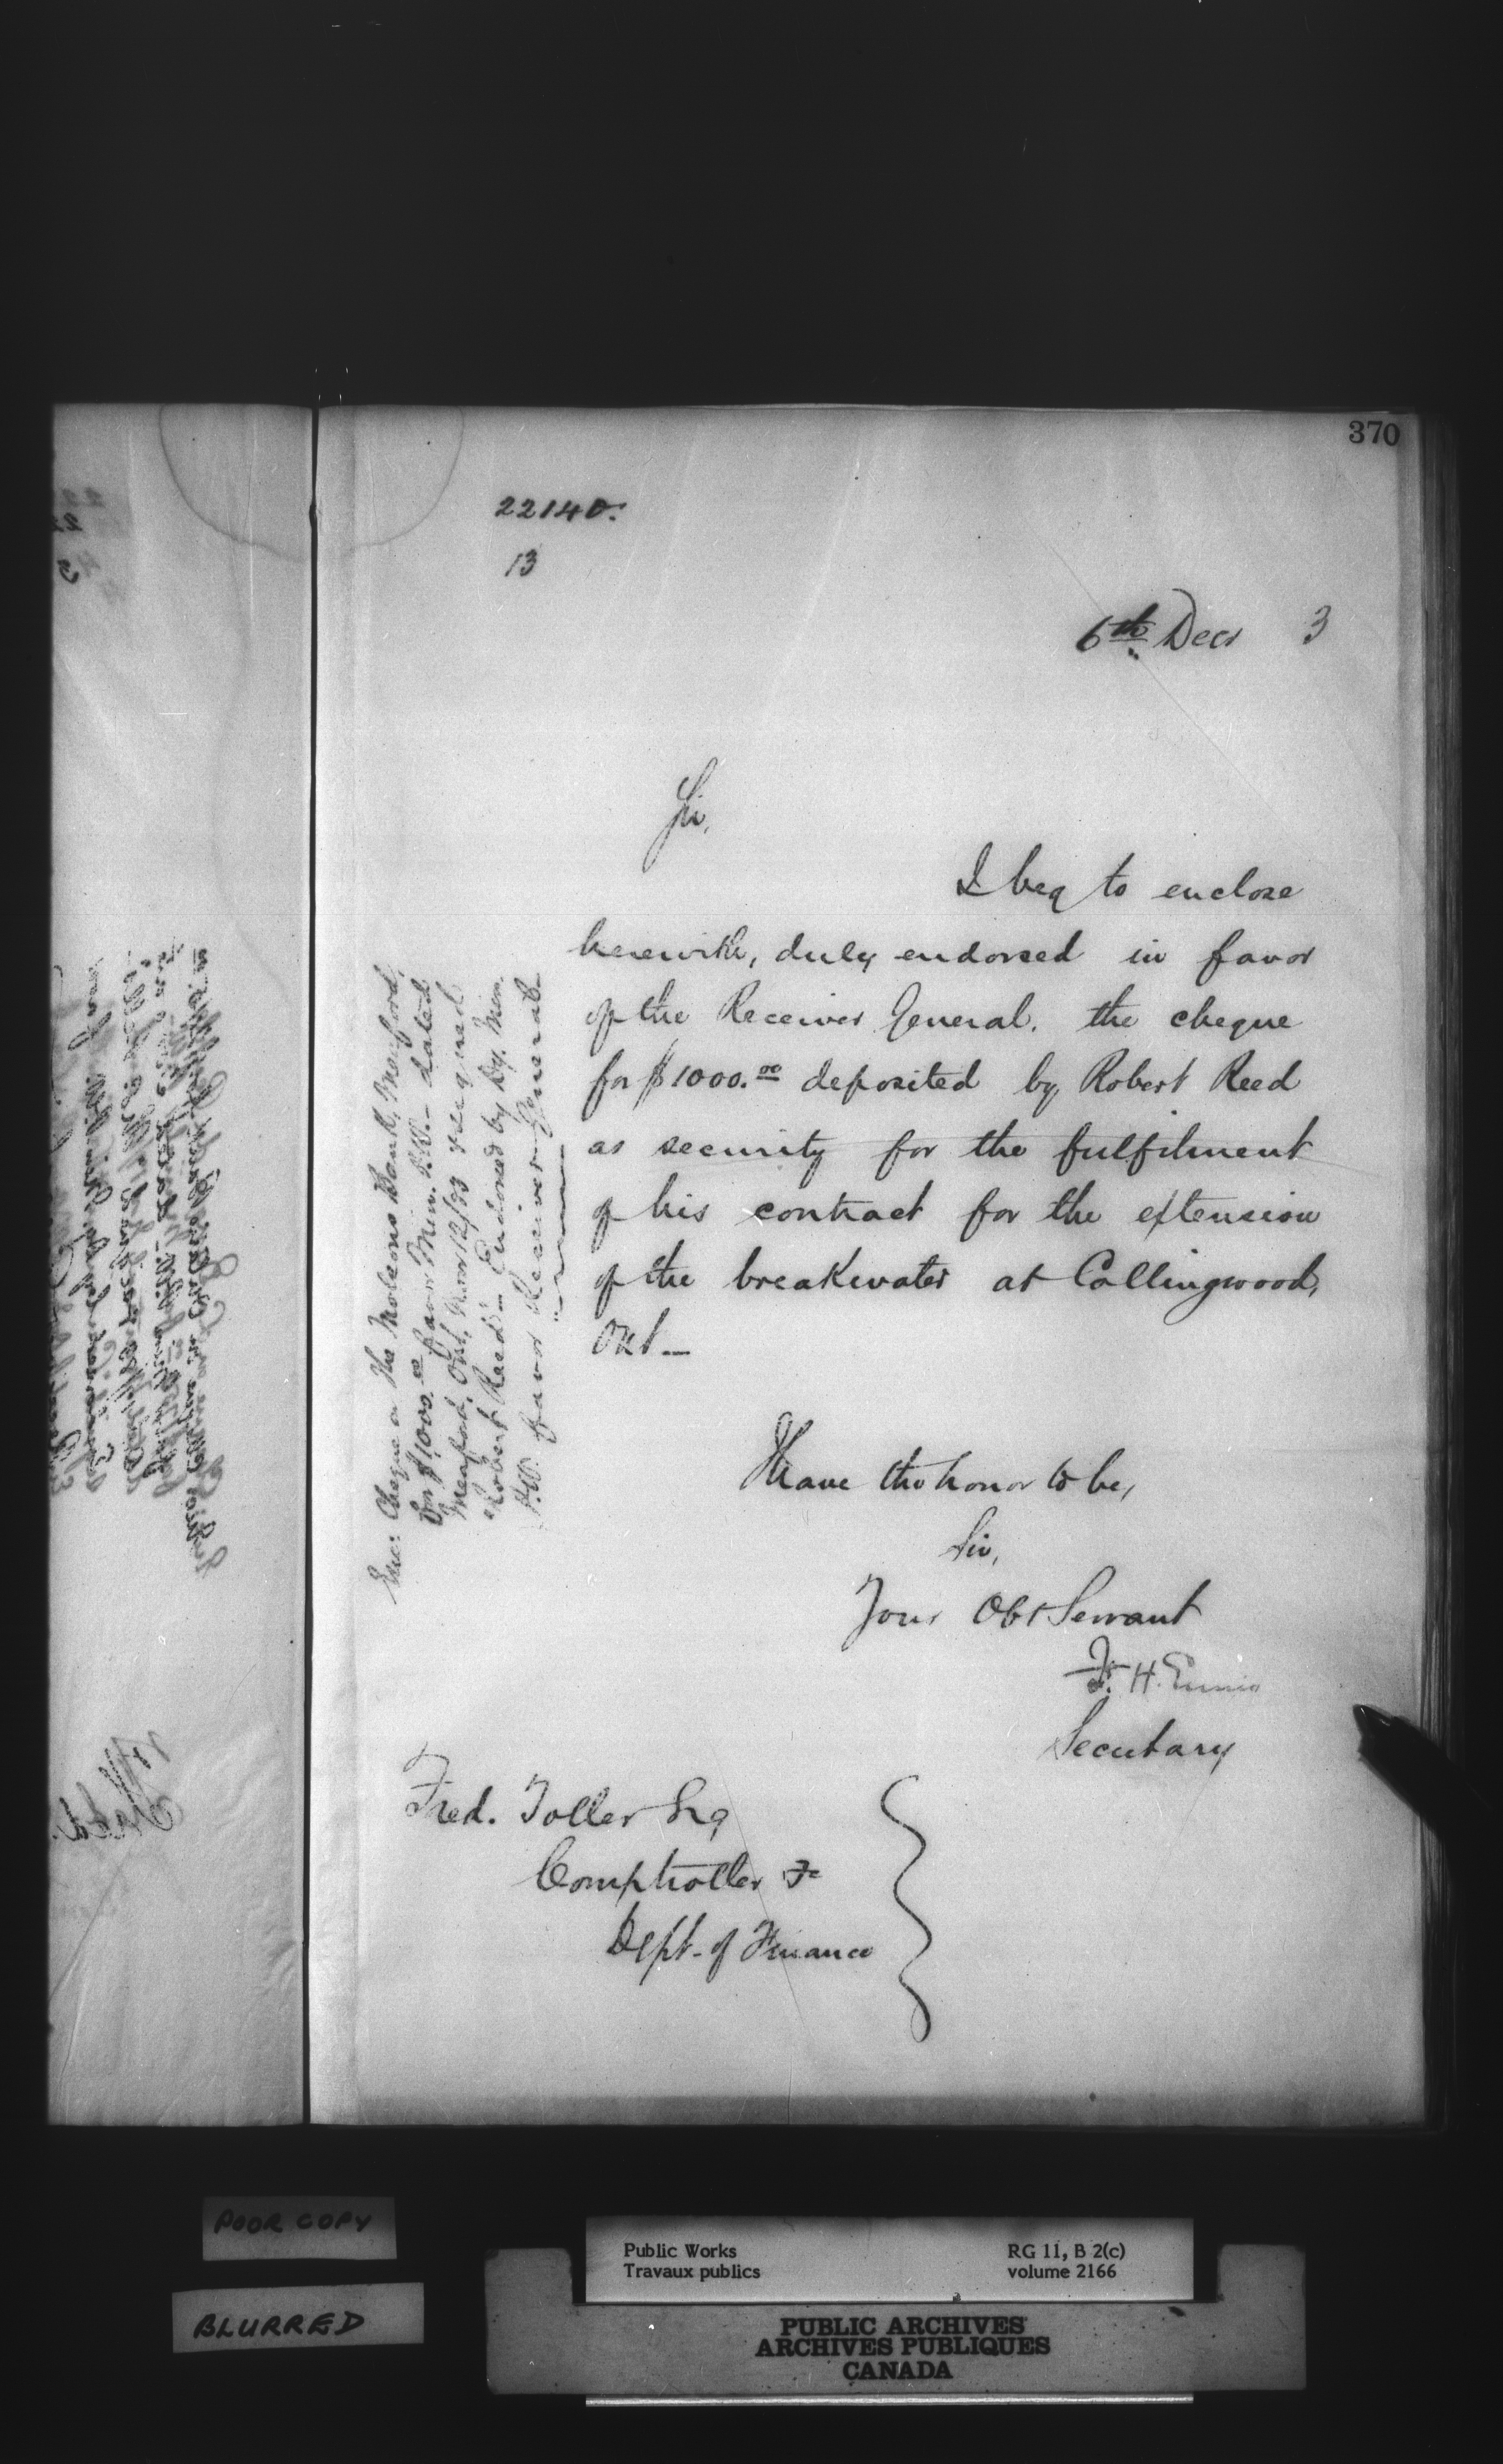 370
22140.
13
6th Decr 3
Sir,
I beg to enclose
herewith, duly endorsed in favor
of the Receiver General. the cheque
for $1000.00 deposited by Robert Reed
as security for the fulfilment
of his contract for the extension
of the breakwater at Collingwood,
Ont_
Have the honor to be,
Sir,
Your Obt Servant
F. H. Ennis
Secretary
Fred. Toller Esq
Comptroller &c
Dept. of Finance
Enc: Cheque on the Molsons Bank, Meaford,
for $1000.00 favor Min. P.W. - dated
Meaford, Ont. Novr 12/83 signed
"Robert Reed" - Endorsed by Dy. Min.
P.W. favor Receiver General
POOR COPY
BLURRED
Public Works
Travaux publics
RG 11, B 2(c)
volume 2166
PUBLIC ARCHIVES
ARCHIVES PUBLIQUES
CANADA